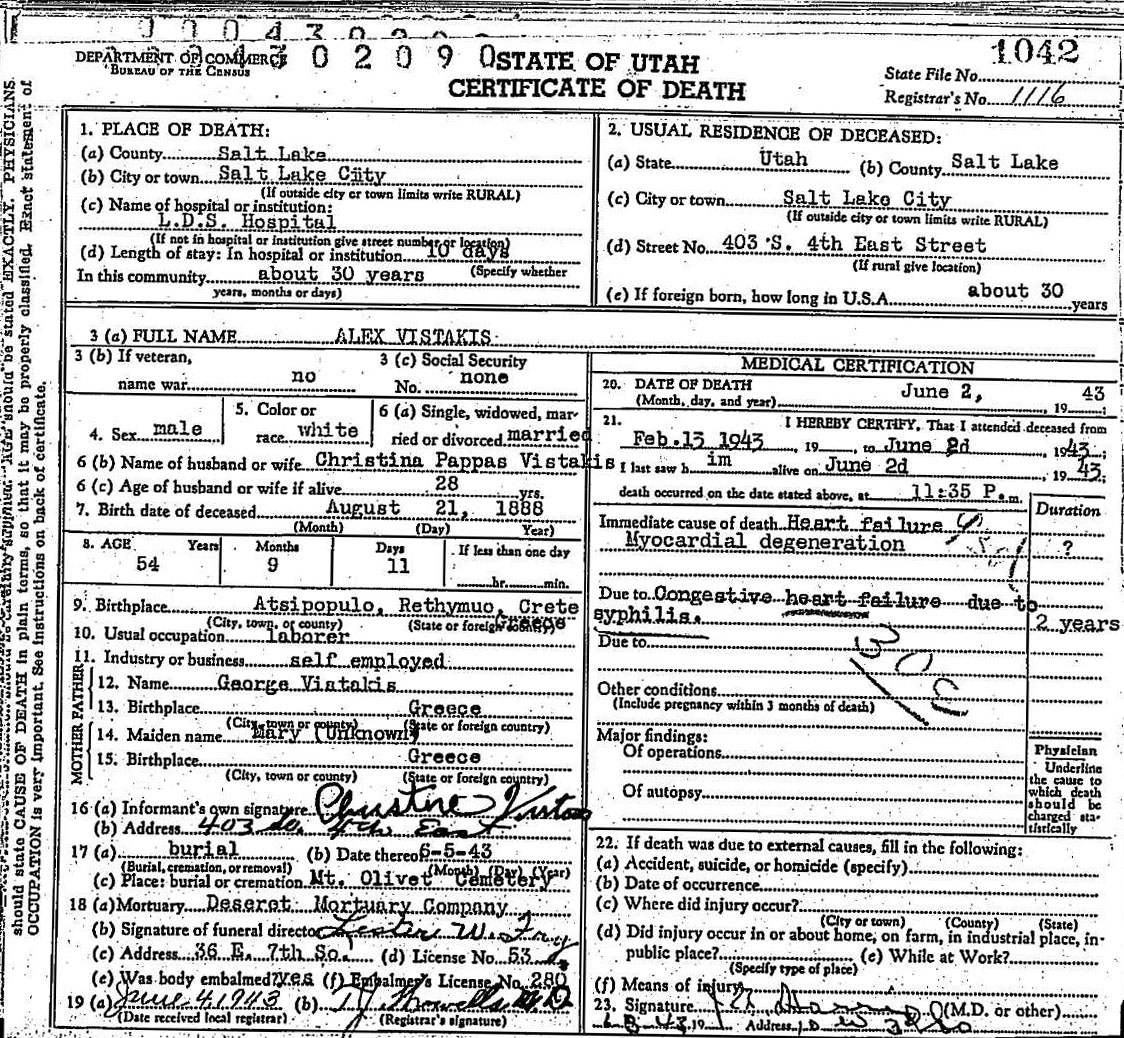 1042
DEPARTMENT OF COMMERCE
BUREAU OF THE CENSUS
3 0 2 0 9 0
STATE OF UTAH
CERTIFICATE OF DEATH
State File No.
Registrar's No. 1116
should state CAUSE OF DEATH in plain terms, so that it may be properly classified. Exact statement of
OCCUPATION is very important. See instructions on back of certificate.
1. PLACE OF DEATH:
(a) County Salt Lake
(b) City or town Salt Lake Ciity
(If outside city or town limits write RURAL)
(c) Name of hospital or institution:
L.D.S. Hospital
(If not in hospital or institution give street number or location)
(d) Length of stay: In hospital or institution 10 days
(Specify whether
In this community about 30 years
years, months or days)
2. USUAL RESIDENCE OF DECEASED:
(a) State Utah (b) County Salt Lake
(c) City or town Salt Lake City
(If outside city or town limits write RURAL)
(d) Street No. 403 S. 4th East Street
(If rural give location)
(e) If foreign born, how long in U.S.A. about 30 years
3 (a) FULL NAME ALEX VISTAKIS
3 (b) If veteran,
name war no
3 (c) Social Security
No. none
4. Sex male
5. Color or
race white
6 (a) Single, widowed, mar-
ried or divorced married
6 (b) Name of husband or wife Christina Pappas Vistakis
6 (c) Age of husband or wife if alive 28 yrs.
7. Birth date of deceased August 21, 1888
(Month) (Day) Year)
8. AGE Years Months Days If less than one day
54 9 11 hr. min.
9. Birthplace Atsipopulo, Rethymuo, Crete
Greece
(City, town, or county) (State or foreign country)
10. Usual occupation laborer
11. Industry or business self employed
FATHER
12. Name George Vistakis
13. Birthplace Greece
(City, town or county) (State or foreign country)
MOTHER
14. Maiden name Mary (Unknown)
15. Birthplace Greece
(City, town or county) (State or foreign country)
16 (a) Informant's own signature Christine Vistas
(b) Address 403 So. 4th East
17 (a) burial (b) Date thereof 6-5-43
(Burial, cremation, or removal) (Month) (Day) (Year)
(c) Place: burial or cremation Mt. Olivet Cemetery
18 (a) Mortuary Deseret Mortuary Company
(b) Signature of funeral director Lester W.
(c) Address 36 E. 7th So. (d) License No. 53
(e) Was body embalmed? yes (f) Embalmer's License No. 280
19 (a) June 4 1943 (b)
(Date received local registrar) (Registrar's signature)
MEDICAL CERTIFICATION
20. DATE OF DEATH June 2, 19 43;
(Month, day, and year)
21. I HEREBY CERTIFY, That I attended deceased from
Feb. 13 1943, 19 , to June 2d , 1943;
I last saw h im alive on June 2d , 19 43;
death occurred on the date stated above, at 11:35 P.m.
Duration
Immediate cause of death Heart failure
Myocardial degeneration ?
Due to Congestive heart failure due to
syphilis. 2 years
Due to
30c
Other conditions
(Include pregnancy within 3 months of death)
Major findings:
Of operations
Of autopsy
Physician
Underline
the cause to
which death
should be
charged sta-
tistically
22. If death was due to external causes, fill in the following:
(a) Accident, suicide, or homicide (specify)
(b) Date of occurrence
(c) Where did injury occur?
(City or town) (County) (State)
(d) Did injury occur in or about home, on farm, in industrial place, in-
public place? (e) While at Work?
(Specify type of place)
(f) Means of injury
23. Signature (M.D. or other)
Address